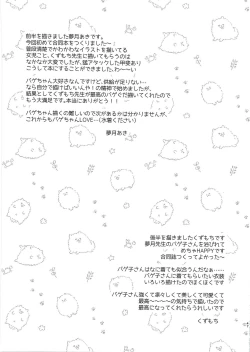 前半を描きました夢月あきです。
今回初めて合同本をつくりました〜
普段清楚でかわわなイラストを描いてる
友達に、くずもち先生に描いてもらうのは
なかなか大変でしたが、猛アタックした甲斐あり
こうして本にする事ができました、わ〜〜い
バゲちゃん大好きなんですけど、供給が足りない…
なら自分で描けばいいんや！の精神で始めましたが、
結果としてくずもち先生が最高のバゲぐ で描いてくれたので
もう大満足です、本当にありがとう！！
バゲちゃん描くの難しいので次があるかは分かりませんが、
これからもバゲちゃんLOVE…（水着ください）
夢月あき
後半を描きましたくずもちです
夢月先生のバゲ子さんを浴びれて
めちゃHAPPYです
合同誌つくってよかった〜
バゲ子さんはなに着ても似合うんだなぁ……
バゲ子さんに着てもらいたい衣装
いろいろ描けたのでほくほくです
バゲ子さん強くて凛々しくて美しくて可愛くて
最高〜〜〜〜な気持ちで描いたので
最高になってくれたらうれしいです
くずもち